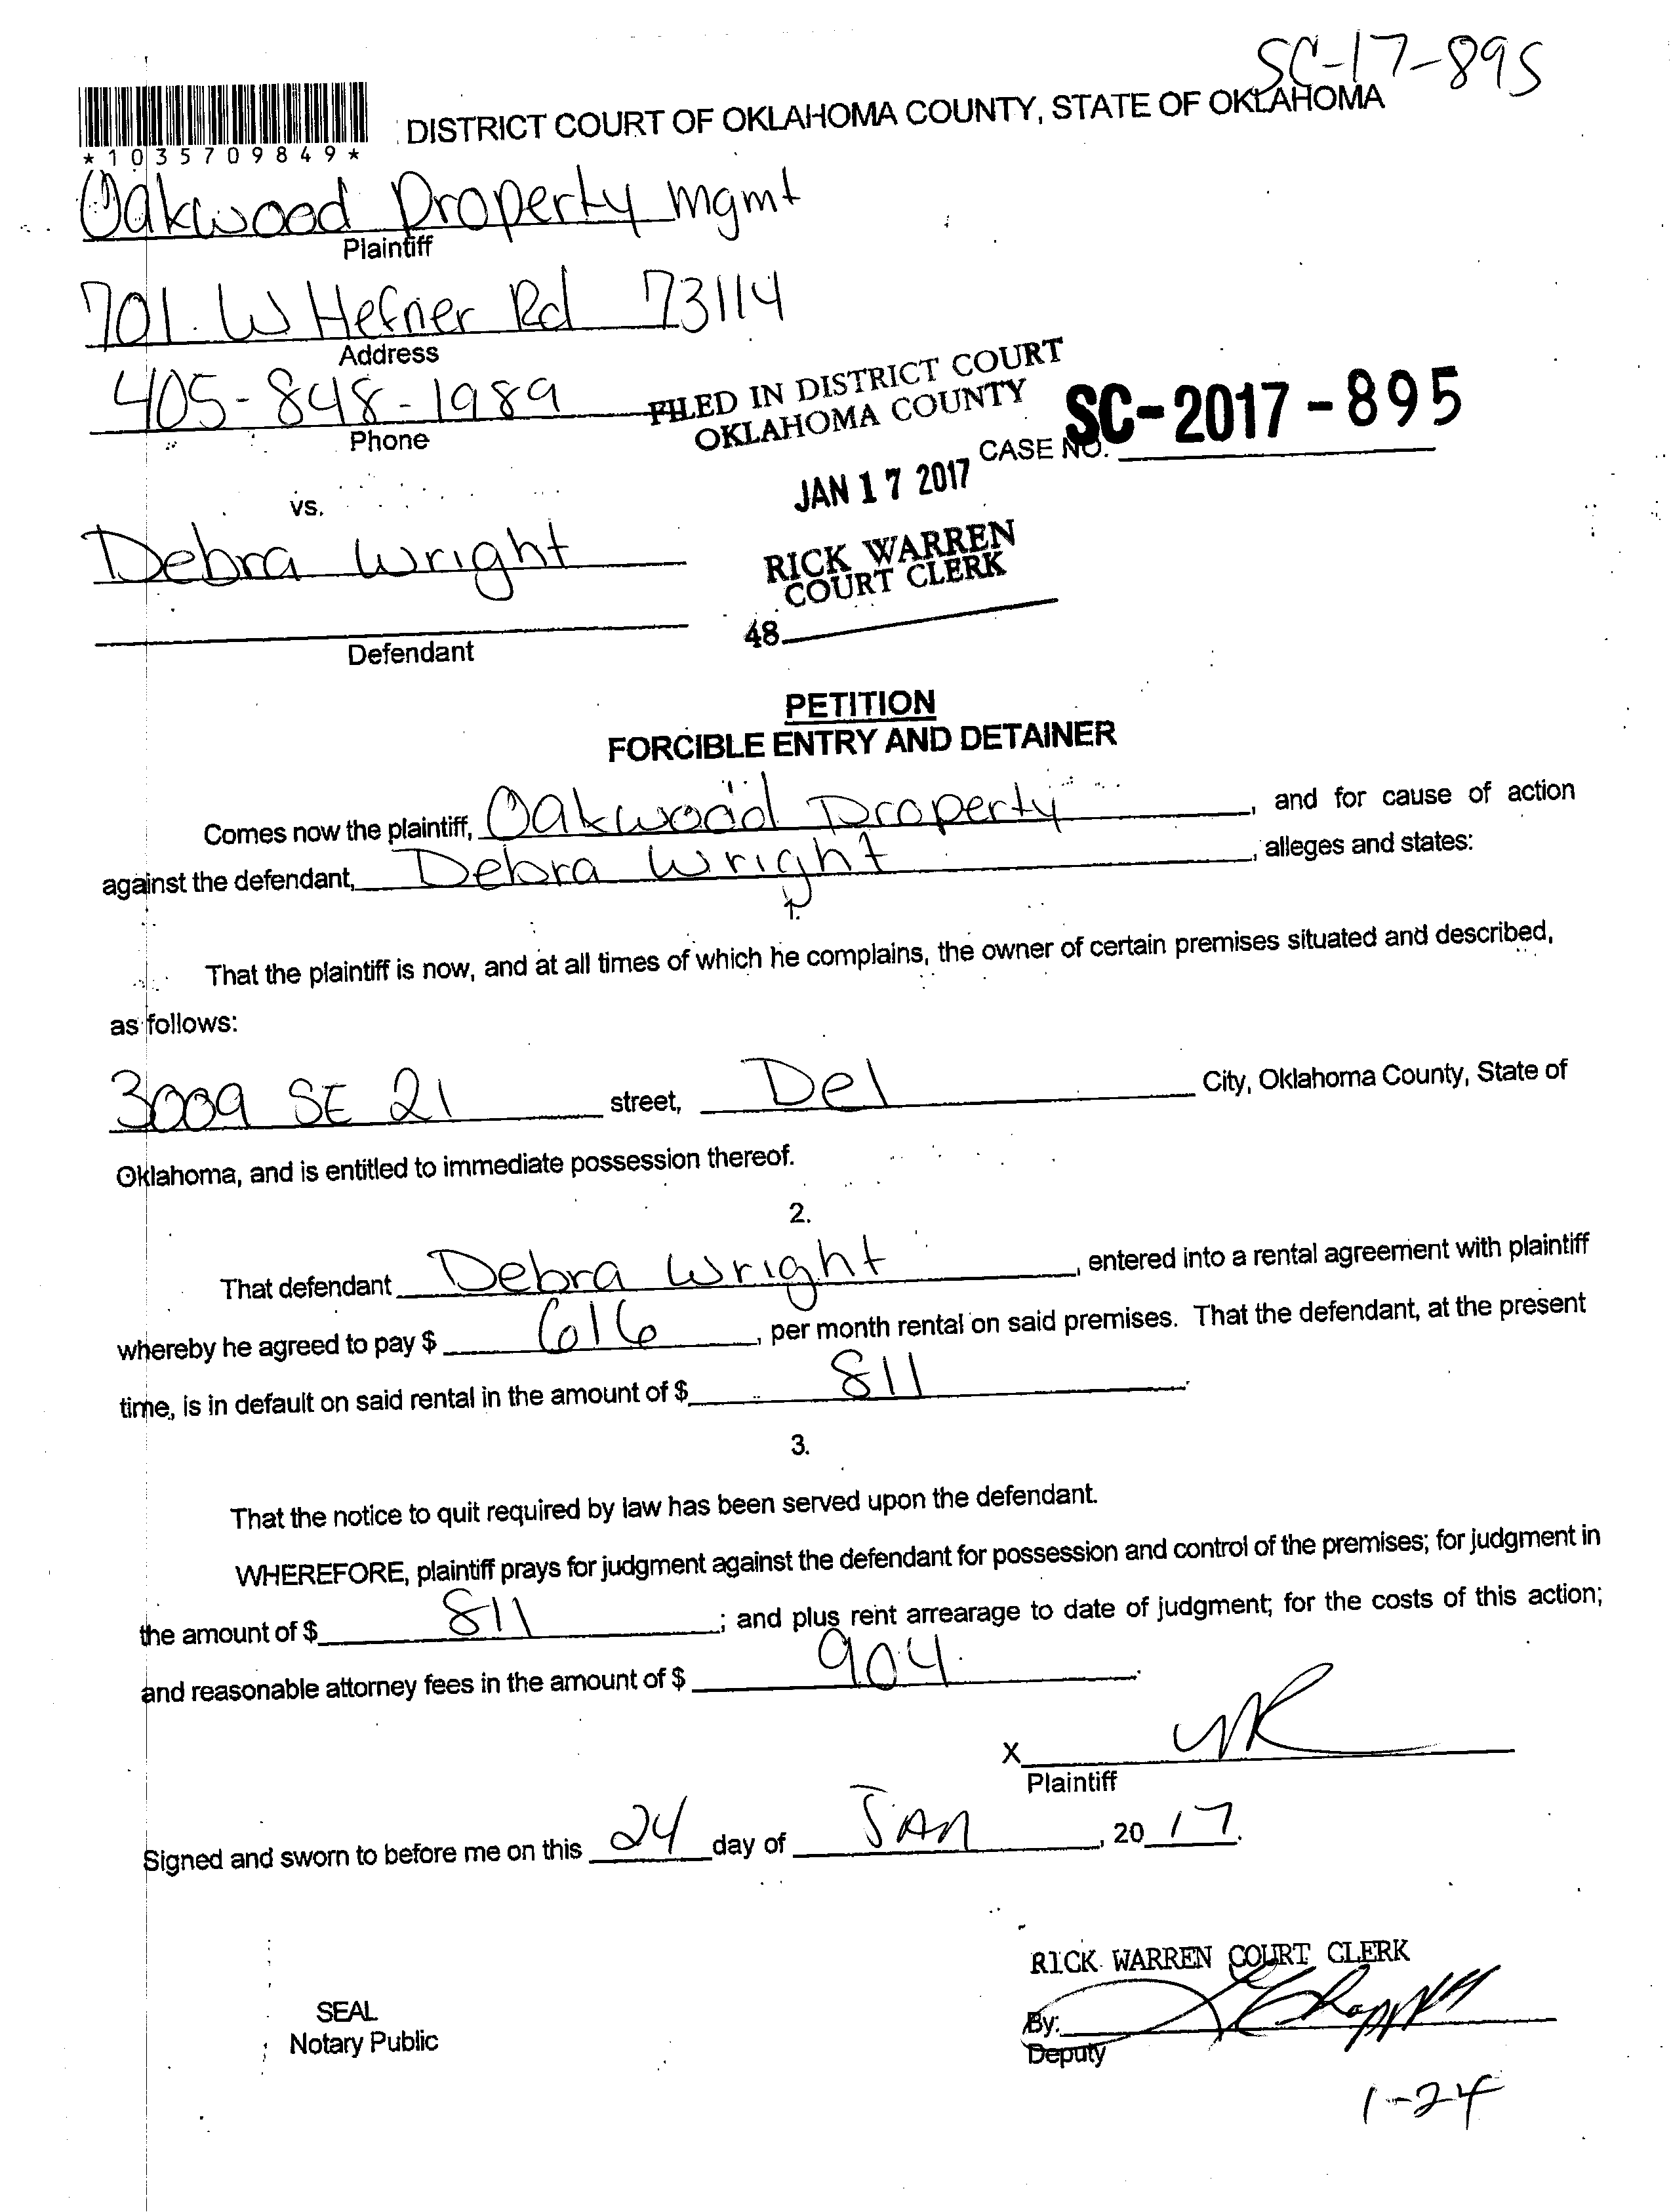 SC-17-895
*1035709849*
DISTRICT COURT OF OKLAHOMA COUNTY, STATE OF OKLAHOMA
Oakwood Property Mgmt
Plaintiff
701 W Hefner Rd 73114
Address
405-848-1989
Phone
FILED IN DISTRICT COURT
OKLAHOMA COUNTY
CASE NO. SC-2017-895
JAN 17 2017
vs.
RICK WARREN
COURT CLERK
Debra Wright
48
Defendant
PETITION
FORCIBLE ENTRY AND DETAINER
Comes now the plaintiff, Oakwood Property, and for cause of action
against the defendant, Debra Wright, alleges and states:
1.
That the plaintiff is now, and at all times of which he complains, the owner of certain premises situated and described,
as follows:
3009 SE 21 street, Del City, Oklahoma County, State of
Oklahoma, and is entitled to immediate possession thereof.
2.
That defendant Debra Wright, entered into a rental agreement with plaintiff
whereby he agreed to pay $ 616, per month rental on said premises. That the defendant, at the present
time, is in default on said rental in the amount of $ 811.
3.
That the notice to quit required by law has been served upon the defendant.
WHEREFORE, plaintiff prays for judgment against the defendant for possession and control of the premises; for judgment in
the amount of $ 811; and plus rent arrearage to date of judgment; for the costs of this action;
and reasonable attorney fees in the amount of $ 904.
X
Plaintiff
Signed and sworn to before me on this 24 day of JAN, 2017.
RICK WARREN COURT CLERK
SEAL
Notary Public
By:
Deputy
1-24